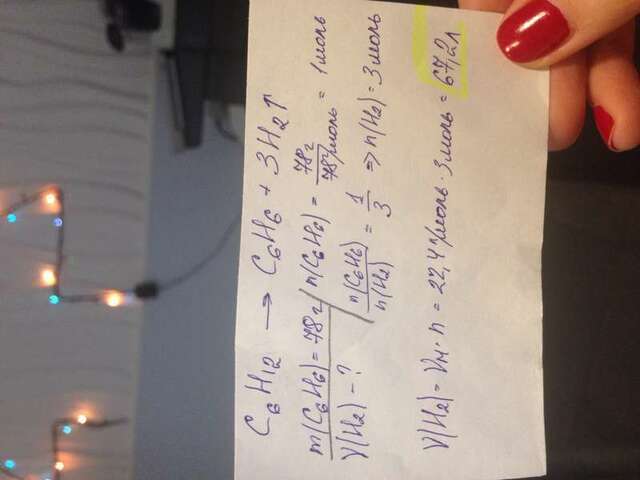 C₆H₁₂ → C₆H₆ + 3H₂↑
m(C₆H₆) = 78 г
V(H₂) - ?
n(C₆H₆) = 78 г / 78 г/моль = 1 моль
n(C₆H₆) / n(H₂) = 1 / 3 => n(H₂) = 3 моль
V(H₂) = Vм · n = 22,4 л/моль · 3 моль = 67,2 л